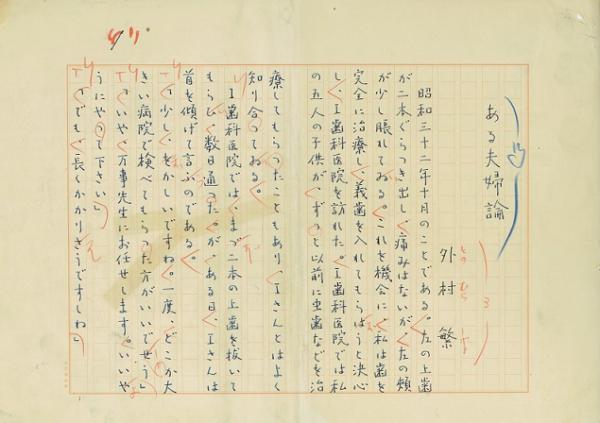 ある夫婦論
外村繁
とのむら
昭和三十二年十月のことである。左の上歯
が二本ぐらつき出し、痛みはないが、左の頬
が少し脹れてゐる。これを機会に、私は歯を
完全に治療し、義歯を入れてもらはうと決心
し、工歯科医院を訪れた。工歯科医院では私
の五人の子供が、ずつと以前に虫歯などを治
療してもらつたこともあり、工さんとはよく
知り合つてゐる。
工歯科医院では、まづ二本の上歯を抜いて
もらひ、数日通つた。が、ある日、工さんは
首を傾げて言ふのである。
「少し、をかしいですね。一度、どこか大
きい病院で検べてもらつた方がいいでせう」
「いや、万事先生にお任せします。いいや
うにやつて下さい」
「でも、長くかかりさうですしね」